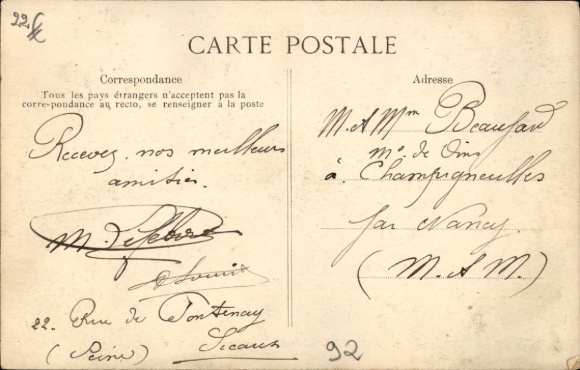 CARTE POSTALE
Correspondance
Tous les pays étrangers n'acceptent pas la
correspondance au recto, se renseigner à la poste
Recevez nos meilleurs
amitiés.
M. Lefebvre
22. Rue de Fontenay
(Seine) Sceaux
Adresse
M. & Mme
Md de Vins
à Champigneulles
par Nancy
(M. & M.)
92